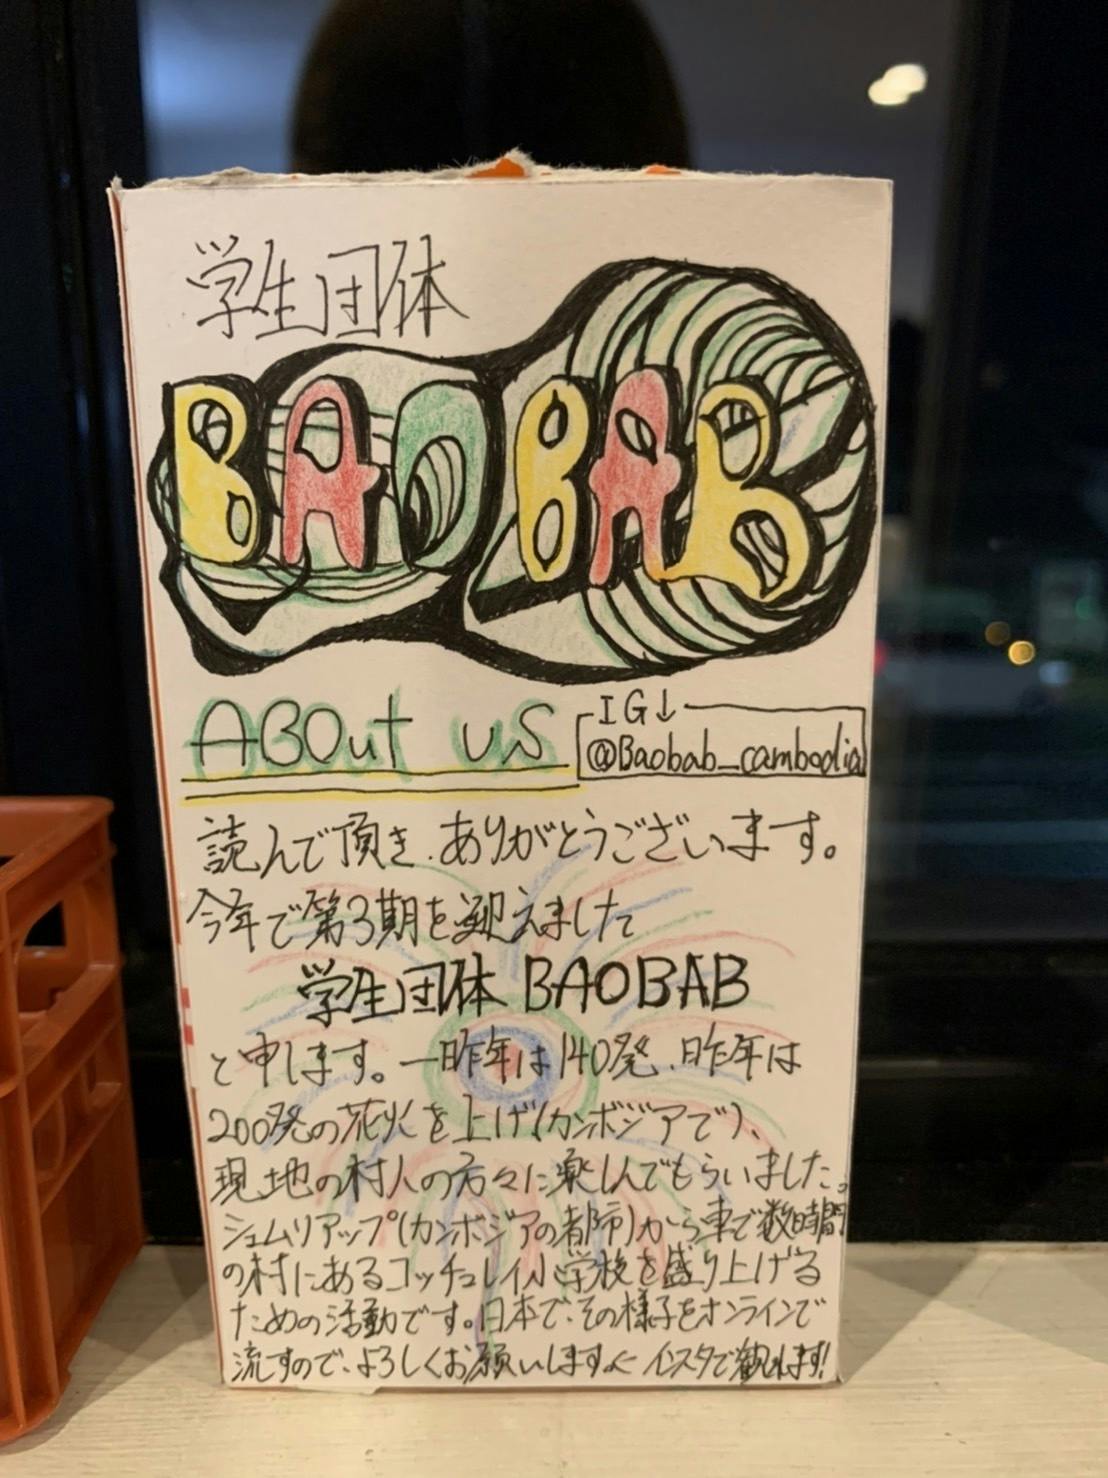 学生団体
BAOBAB
ABOut us
IG↓
@Baobab_cambodia
読んで頂き、ありがとうございます。
今年で第3期を迎えました
学生団体 BAOBAB
と申します。一昨年は140発、昨年は
200発の花火を上げ(カンボジアで)、
現地の村人の方々に楽しんでもらいました。
シェムリアップ(カンボジアの都市)から車で数時間
の村にあるコッチュレイ小学校を盛り上げる
ための活動です。日本で、その様子をオンラインで
流すので、よろしくお願いします← インスタで観れます!